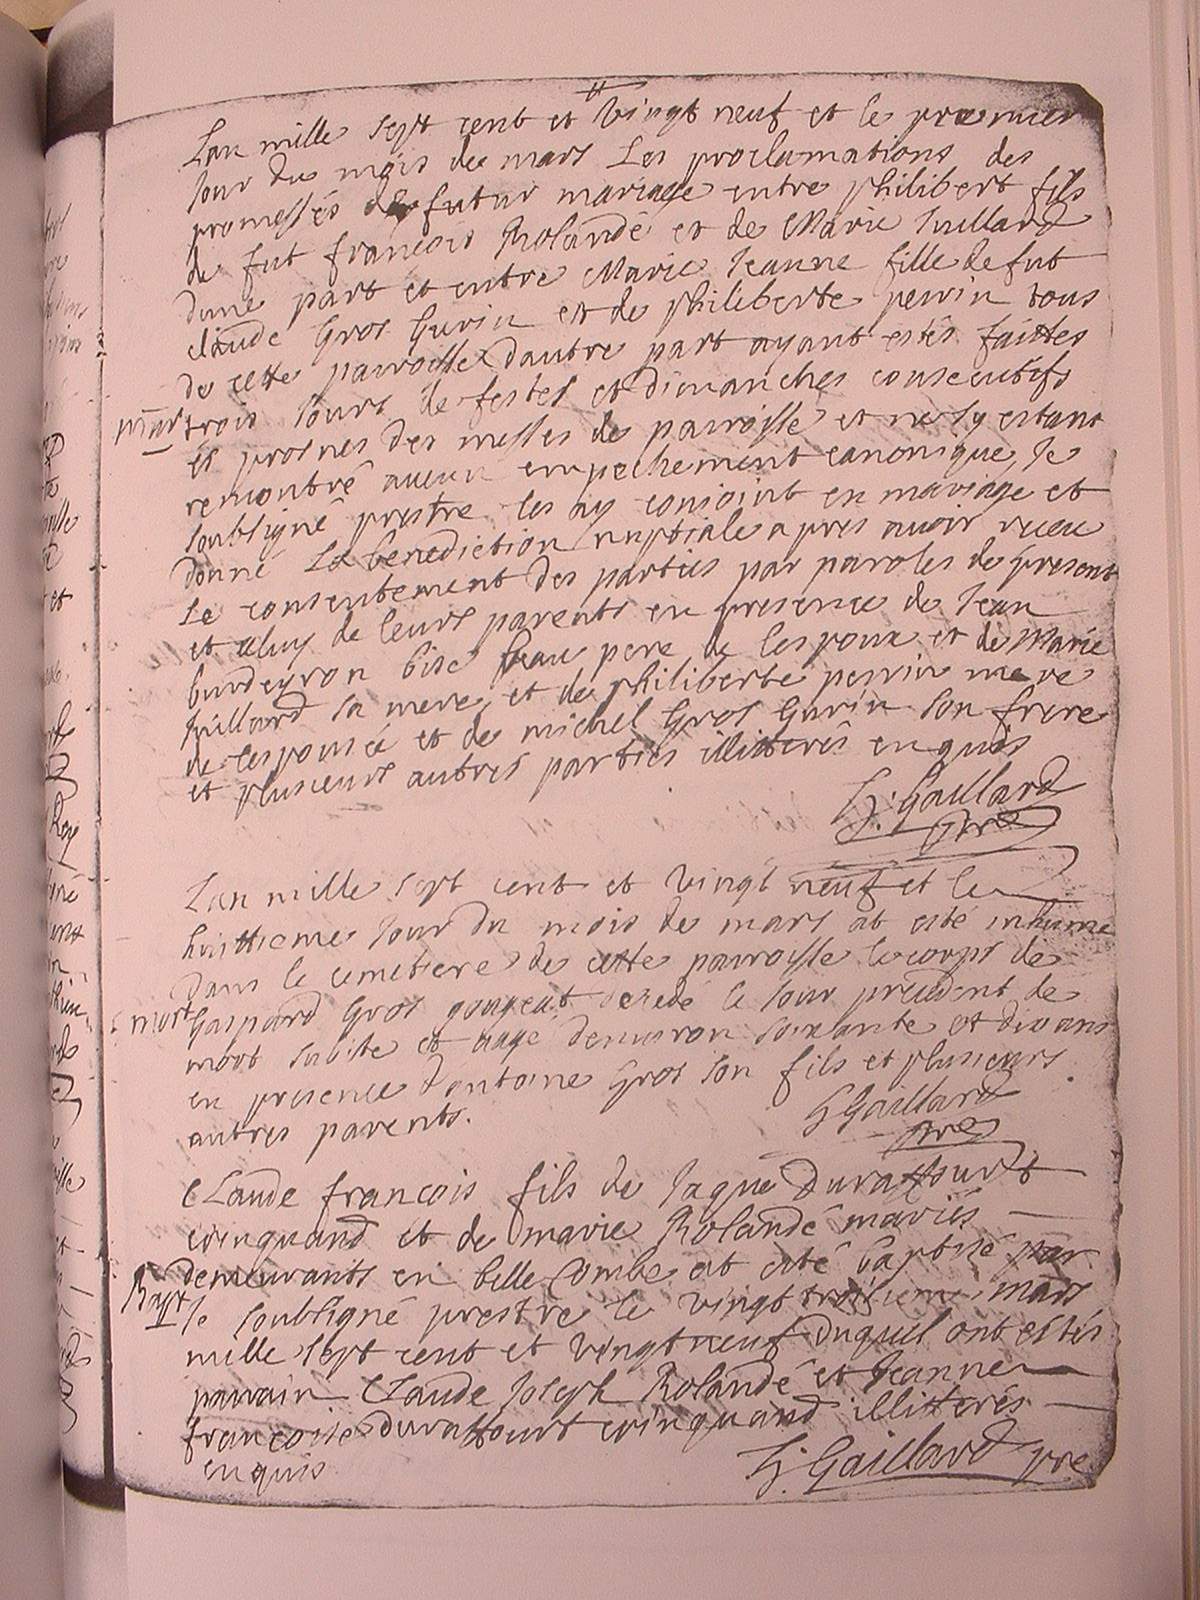 Lan mille sept cent et vingt neuf et le premier
Jour du mois de mars Les proclamations des
promessés de futur mariage entre philibert fils
de fut francois Rolandé et de Marie Juillard
dune part et entre Marie Jeanne fille de fut
claude Gros Gurin et de philiberte perrin tous
de cette parroisse dautre part ayant estés faittes
mar trois Jours de festes et dimanches consecutifs
es prosnes des messes de parroisse et ne sy estant
remontré aucun empechement canonique, Je
soubsigné prestre les ay conjoint en mariage et
donné La benediction nuptiale apres avoir receu
Le consentement des parties par paroles de present
et celuy de leurs parents en presence de Jean
burdeyron bise beau pere de lespoux et de Marie
Juillard sa mere, et de philiberte perrin mere
de lespousée et de michel Gros Gurin son frere
et plusieurs autres parties illitterés enquis
Gaillard
pre
Lan mille sept cent et vingt neuf et le
huittieme Jour du mois de mars at esté inhumé
Dans le cemetiere de cette parroisse le corps de
mort Gaspard Gros gougeat decedé le Jour precedent de
mort subite et aagé denviron soixante et dix ans
en presence dantoine Gros son fils et plusieurs
autres parents.
Gaillard
pre
Claude francois fils de Jaque Duraffourt
crinquand et de marie Rolandé mariés
demeurants en belle Combe at esté baptisé par
Bapt Je soubsigné prestre le vingt troisieme mars
mille sept cent et vingt neuf Duquel ont estés
parrain Claude Joseph Rolandé et Jeanne
francoise duraffourt crinquand illitterés
enquis
Gaillard pre